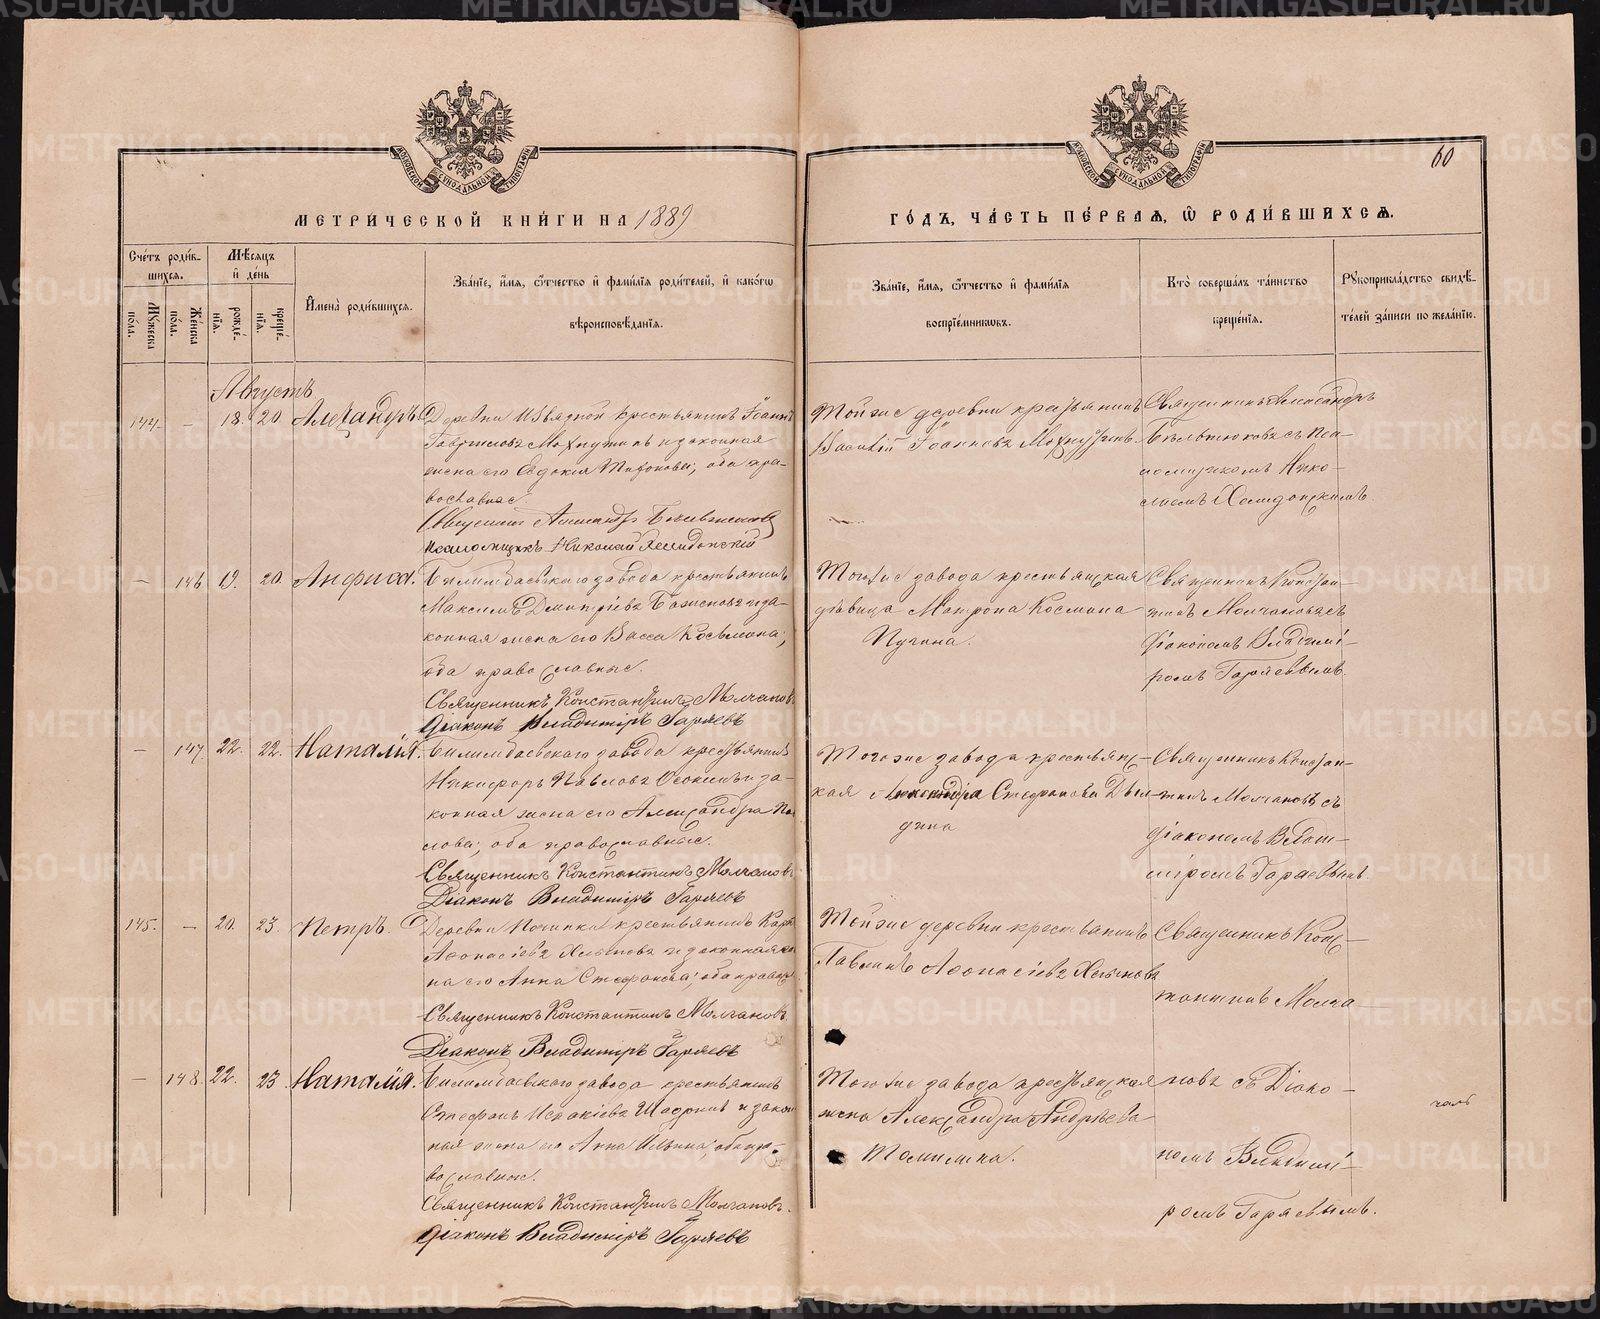 МЕТРИ́ЧЕСКОЙ КНИ́ГИ НА 1889
ГО́ДЪ, ЧА́СТЬ ПЕ́РВАѦ, Ѽ РОДИ́ВШИХСѦ.
60
Сче́тъ роди́в-
шихся.
Мѣ́сяцъ
и де́нь
Му́жеска по́ла.
Же́нска по́ла.
рожде́-
нїя.
креще́-
нїя.
Имена̀ роди́вшихся.
Зва́нїе, и́мя, ѻ́тчество и фами́лїя роди́телей, и како́гѡ
вѣроисповѣ́данїя.
Зва́нїе, и́мя, ѻ́тчество и фами́лїя
воспрїе́мникѡвъ.
Кто̀ соверша́лъ та́инство
креще́нїя.
Рꙋкоприкла́дство свидѣ́-
телей за́писи по жела́нїю.
Августъ
144. – 18. 20. Александръ.
Деревни Извядной крестьянинъ Іоаннъ
Гавриловъ Махнуткинъ и законная
жена его Евдокия Тихонова; оба пра-
вославные.
Священникъ Александръ
Псаломщикъ Николай Хелидонскій
Тойже деревни крестьянинъ
Василій Іоанновъ
Священникъ Александръ
съ Пса-
ломщикомъ Нико-
лаемъ Хелидонскимъ.
– 146. 19. 20. Анфиса.
Билимбаевскаго завода крестьянинъ
Максимъ Димитріевъ и за-
конная жена его Васса Косьмина;
оба православные.
Священникъ Константинъ Молчановъ
Діаконъ Владиміръ Гаряевъ
Тогоже завода крестьянская
дѣвица Матрона Космина
Пугина.
Священникъ Констан-
тинъ Молчановъ съ
Діакономъ Владимі-
ромъ Гаряевымъ.
– 147. 22. 22. Наталія.
Билимбаевскаго завода крестьянинъ
Никифоръ Павловъ и за-
конная жена его Александра
оба православные.
Священникъ Константинъ Молчановъ
Діаконъ Владиміръ Гаряевъ
Тогоже завода крестьянс-
кая Александра Стефанова
Священникъ Констан-
тинъ Молчановъ съ
діакономъ Влади-
міромъ Гаряевымъ.
145. – 20. 23. Петръ.
Деревни Починка крестьянинъ
Аѳонасіевъ и законная же-
на его Анна Стефанова; оба
Священникъ Константинъ Молчановъ.
Діаконъ Владиміръ Гаряевъ
Тойже деревни крестьянинъ
Аѳонасіевъ
Священникъ Конс-
тантинъ Молча-
– 148. 22. 23. Наталія.
Билимбаевскаго завода крестьянинъ
Стефанъ Исакіевъ Шадринъ и закон-
ная жена его Анна Ильина; оба пра-
вославные.
Священникъ Константинъ Молчановъ.
Діаконъ Владиміръ Гаряевъ
Тогоже завода крестьянская
жена Александра Андреева
Томилина.
новъ съ Діако-
номъ Владимі-
ромъ Гаряевымъ.
METRIKI.GASO-URAL.RU